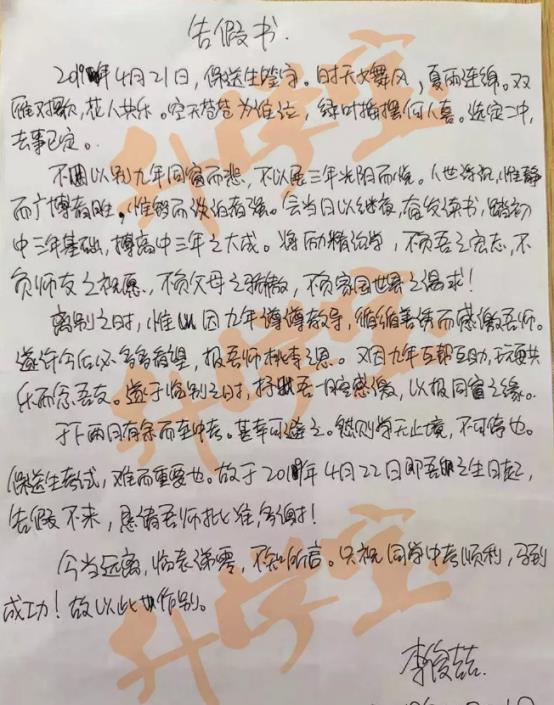 告假书.
2019年4月21日,保送生签字。时天女舞风,夏雨连绵。双
雁对携欣,花人共乐。空天苍苍为谁泣,绿叶摇摆何人喜。选定二中,
去事已定。
不因以别九年同窗而悲,不以展三年光阴而悦。人世浮沉,惟静
而广博者胜,惟智而淡泊者强。会当日以继夜,奋发读书,踏初
中三年基础,搏高中三年之大成。将励精治学,不负吾之宏志,不
负师友之祝愿,不负父母之骄傲,不负家国世界之渴求!
离别之时,惟以因九年谆谆教导,循循善诱而感激吾师。
遂许今后必多多看望,报吾师桃李之恩。又因九年互帮互助,玩耍共
乐而念吾友。遂于临别之时,抒吾一腔感激,以报同窗之缘。
于下两月有余而至中考。甚幸可避之。然则学无止境,不可停也。
保送生考试,难而重要也。故于2019年4月22日即吾之生日起,
告假不来,恳请吾师批准,多谢!
今当远离,临表涕零,不知所言。只祝同学中考顺利,马到
成功!故以此作别。
李俊喆
升学宝
升学宝
升学宝